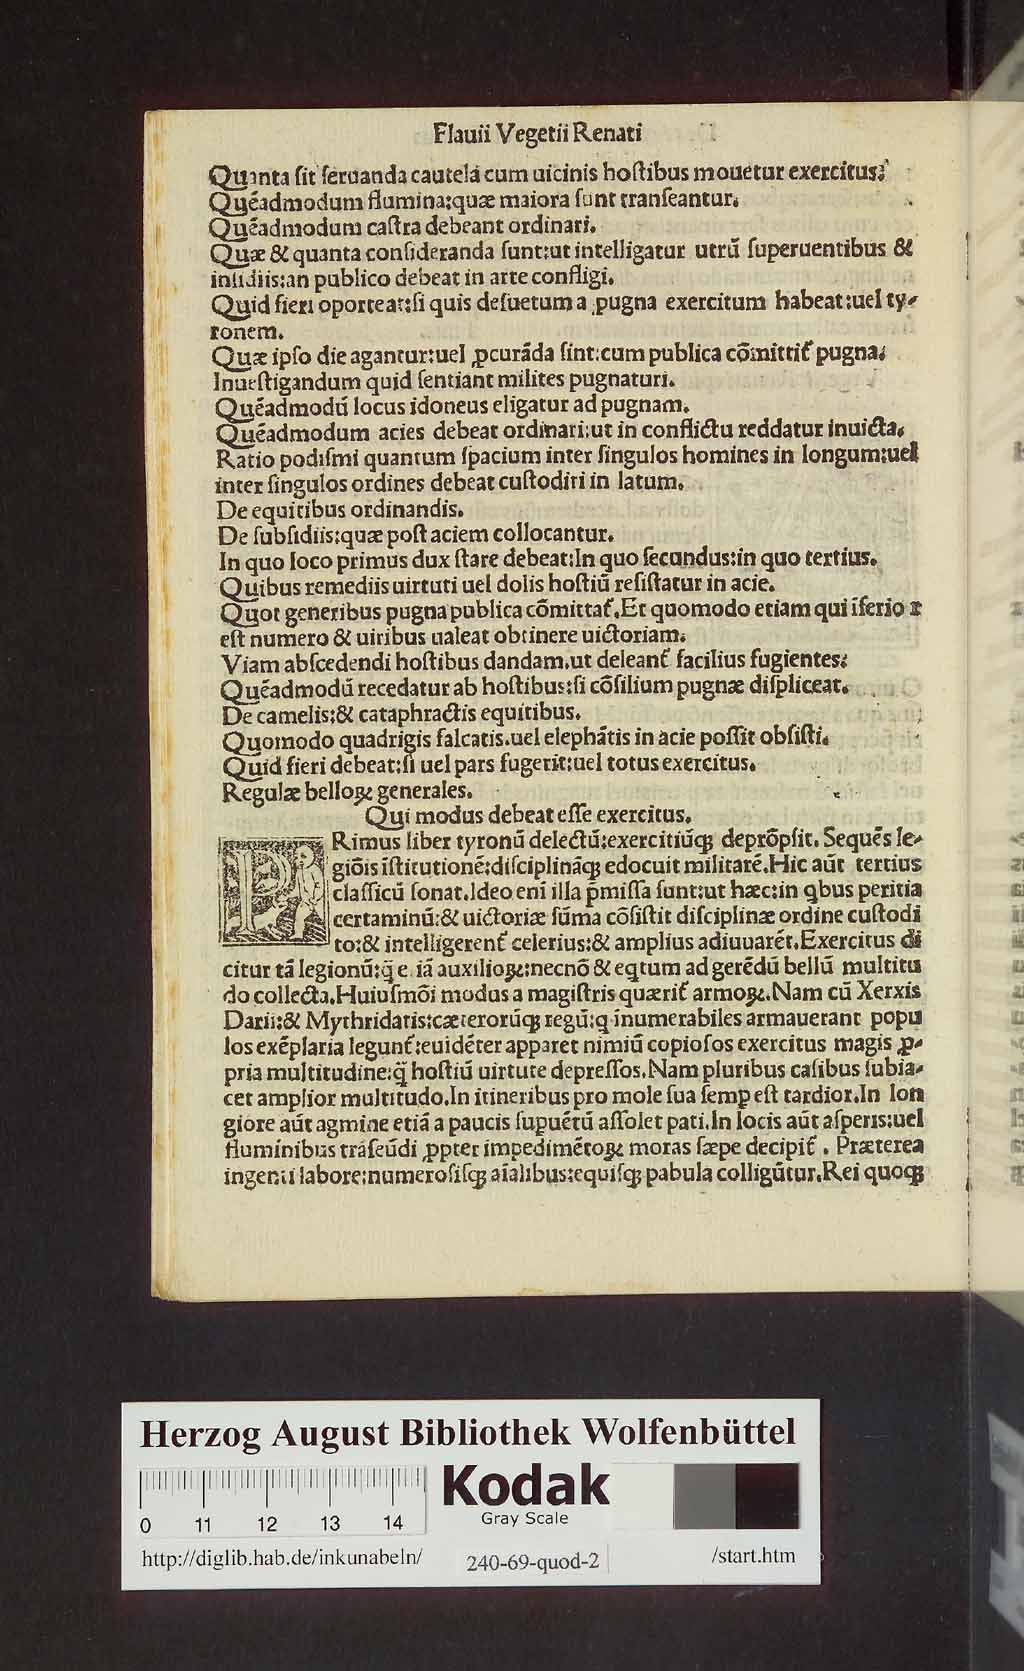 Flauii Vegetii Renati
Quanta ſit ſeruanda cautela cum uicinis hoſtibus mouetur exercitus:
Quēadmodum flumina:quæ maiora ſunt tranſeantur.
Quēadmodum caſtra debeant ordinari.
Quæ & quanta conſideranda ſunt:ut intelligatur utrū ſuperuentibus &
inſidiis:an publico debeat in arte confligi.
Quid fieri oporteat:ſi quis deſuetum a pugna exercitum habeat:uel ty-
ronem.
Quæ ipſo die agantur:uel ꝓcurāda ſint:cum publica cōmittit᷑ pugna.
Inueſtigandum quid ſentiant milites pugnaturi.
Quēadmodū locus idoneus eligatur ad pugnam.
Quēadmodum acies debeat ordinari:ut in conflictu reddatur inuicta.
Ratio podiſmi quantum ſpacium inter ſingulos homines in longum:uel
inter ſingulos ordines debeat cuſtodiri in latum.
De equitibus ordinandis.
De ſubſidiis:quæ poſt aciem collocantur.
In quo loco primus dux ſtare debeat:In quo ſecundus:in quo tertius.
Quibus remediis uirtuti uel dolis hoſtiū reſiſtatur in acie.
Quot generibus pugna publica cōmittat᷑.Et quomodo etiam qui īferio r
eſt numero & uiribus ualeat obtinere uictoriam.
Viam abſcedendi hoſtibus dandam.ut deleant᷑ facilius fugientes:
Quēadmodū recedatur ab hoſtibus:ſi cōſilium pugnæ diſpliceat.
De camelis:& cataphractis equitibus.
Quomodo quadrigis falcatis.uel elephātis in acie poſſit obſiſti.
Quid fieri debeat:ſi uel pars fugerit:uel totus exercitus.
Regulæ belloꝝ generales.
Qui modus debeat eſſe exercitus.
PRimus liber tyronū delectū:exercitiūq̧ deprōpſit. Sequēs le-
giōis īſtitutionē:diſciplināq̧ edocuit militarē.Hic aūt tertius
claſſicū ſonat.Ideo enī illa p̄miſſa ſunt:ut hæc:in qbus peritia
certaminū:& uictoriæ ſūma cōſiſtit diſciplinæ ordine cuſtodi
to:& intelligerent᷑ celerius:& amplius adiuuarēt.Exercitus di
citur tā legionū:q̄ e iā auxilioꝝ:necnō & eqtum ad gerēdū bellū multitu
do collecta.Huiuſmōi modus a magiſtris quærit᷑ armoꝝ.Nam cū Xerxis
Darii:& Mythridatis:cæterorūq̧ regū:q īnumerabiles armauerant popu
los exēplaria legunt᷑:euidēter apparet nimiū copioſos exercitus magis ꝓ-
pria multitudine:q̄ hoſtiū uirtute depreſſos.Nam pluribus caſibus ſubia-
cet amplior multitudo.In itineribus pro mole ſua ſemꝑ eſt tardior.In lon
giore aūt agmine etiā a paucis ſupuētū aſſolet pati.In locis aūt aſperis:uel
fluminibus trāſeūdi ꝓpter impedimētoꝝ moras ſæpe decipit᷑ . Præterea
ingenti labore:numeroſiſq̧ aīalibus:equiſq̧ pabula colligūtur.Rei quoq̧
Herzog August Bibliothek Wolfenbüttel
Kodak
Gray Scale
0 11 12 13 14
http://diglib.hab.de/inkunabeln/ 240-69-quod-2 /start.htm